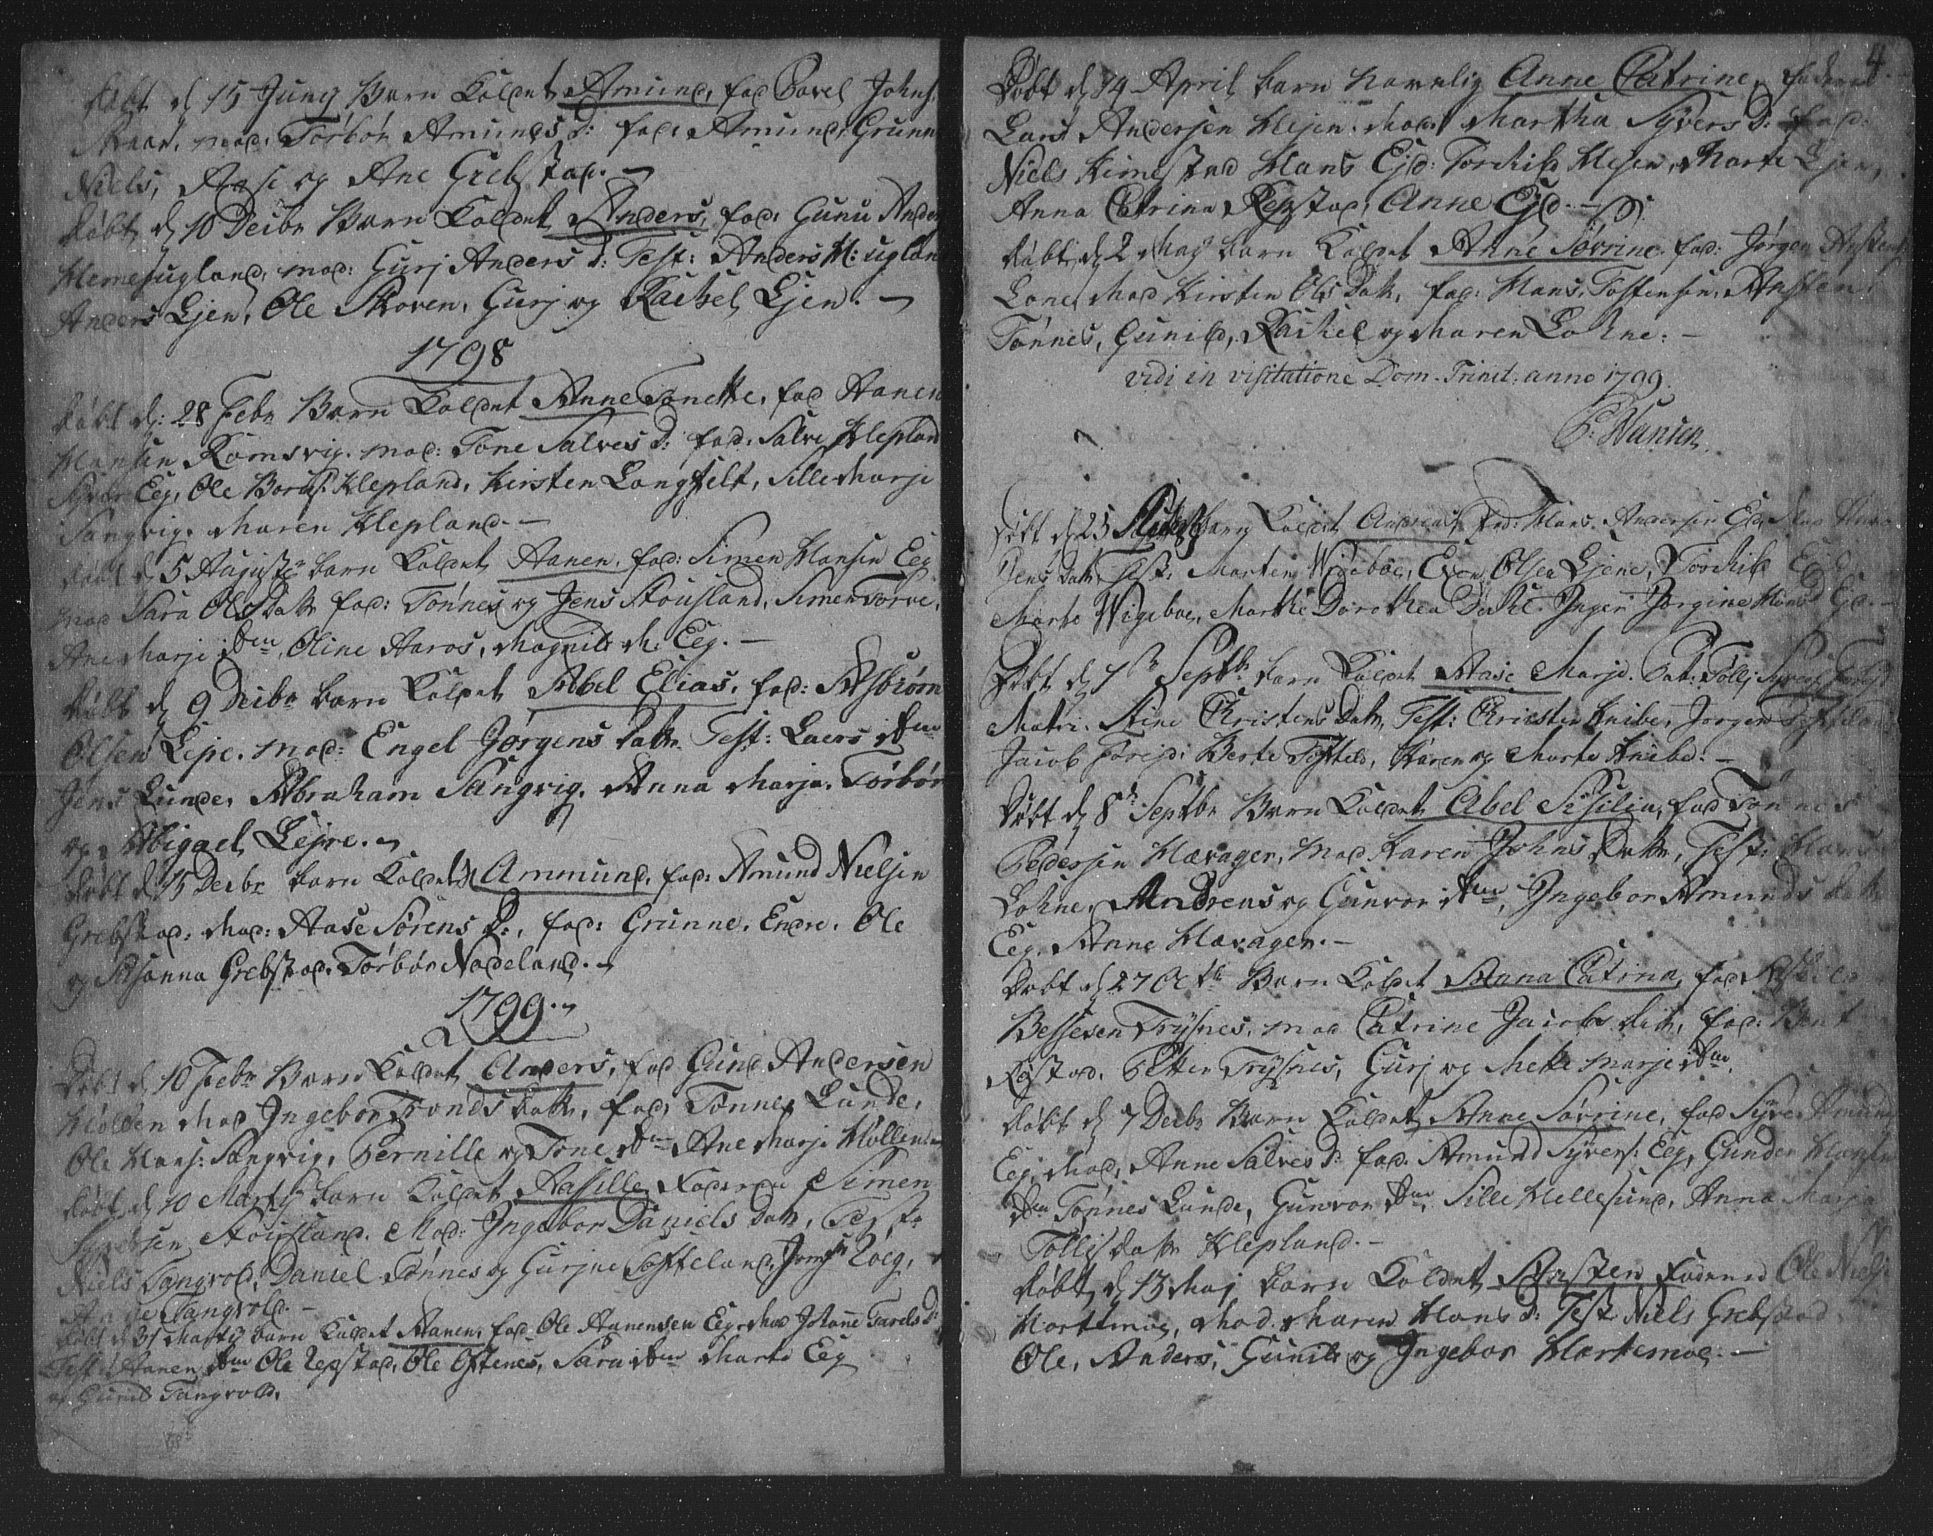 døbt d 15 Juny Barn Kaldet Amund, fad Povel Johns.
mod: Torbor Amunds D: fad: Amund, Grunne
Niels, Aase og Ane Grebstad.
døbt d 10 Decbr Barn Kaldet Anders, fad: Gunu Anders
Hemesugland, mod: Gurj Anders D: Test: Anders H:ugland
Anders Ejen, Ole Skoven, Gurj og Rachel Ejen.
1798
døbt d: 28 Febr Barn Kaldet Anne Tonette, fad Aanen
Hansen Romsvig. mod: Tone Salves D: fad: Salve Klepland
Eeg, Ole Klepland, Kirsten Langfelt, Sille Marje
Sangvig, Maren Klepland.
døbt d 5 Auguste barn Kaldet Aanen, fad: Simen Hansen Eeg
mod Sara Ols Datt fad: Tønnes og Jens Stousland, Simen
Ane Marje ibm, Oline Aaros, Magnild M. Eeg.
døbt d 9 Decbr barn Kaldet Abel Elias, fad: Asbiørn
Olsen Leire. mod: Engel Jørgens datt. Test: Laers ibm
Jens Lunde, Abraham Sangvig, Anna Marja, Torbor
og Abigael Lejre.
døbt d 15 Decbr barn Kaldet Ammund, fad: Amund Nielsen
Grebstad: Mod: Aase Sørens D:, fad: Grunne, Endre, Ole
og Susanna Grebstad, Torbor Nodeland.
1799.
Døbt d 10 Febr Barn Kaldet Anders, fad Gunu Andersen
Hollen Mod Ingebor Tronds datt, fad: Tønnes Lunde,
Ole Hans: Sangvig, Pernille og Tone ibm Ane Marje Hollen
døbt d 10 Martj barn Kaldet Aasille Faderen Simen
Syversen Stousland. Mod: Ingebor Daniels Datt, Test:
Niels Tangvold, Daniel Tønnes og Gurjne Tofteland,
Tangvold.
døbt d 31 Martj barn Kaldet Aanen, fad Ole Aanensen Eeg Mod Johane Tarels D:
Test: Aanen ibm Ole Repstad, Ole Oftenes, Sara ibm Marte Eeg
og Gunild Tangvold.
4
Døbt d 14 April barn navnlig Anne Catrine, faderen
Lars Andersen Hejen. Mod: Martha Syvers D: fad:
Niels Kimestad Hans Ejd: Torkild Hejen, Marte Ejen,
Anna Catrina Repstad, Anne Ejd.
døbt d 2 Maj barn Kaldet Anne Sørine fad: Jørgen Anstens:
Lone, Mod Kirsten Ols Datt, fad: Hans, Tostensen, Ansten,
Tønnes, Gunild, Rachel og Maren Lohne.
vidi in visitatione Dom. Trinit. anno 1799.
P: Hansen
Døbt d 25 barn Kaldet Andreas, fad: Hans Andersen
Jens Datt, Test: Marten Wigeboe, Even Olsen Ejene, Torkild Ejd
Marte Wigeboe, Marthe Dorothea Dahl. Inger Jorgine Ejd.
Døbt d 1 Septbr barn Kaldet Aase Marje. Pat: Tollj Syvers
Matri. Stine Christens Datt, Test: Christen Knibe, Jorgen Tofteland
Jacob Berte Karen og Marte Knibe.
Døbt d 8 Septbr Barn Kaldet Abel Sisilia, fad Tønnes
Pedersen Hævager, mod Karen Johns Datt, Test: Hans
Lohne, Andreas og Gunvor ibm, Ingebor Amunds datt
Eeg, Anne Hævager.
Døbt d 27 Octbr Barn Kaldet Anna Catrina, fad Askild
Bessesen Trysnes, mod Catrine Jacobs datt, fad: Bent
Røstad, Petter Trysnes, Gurj og Mette Marje ibm.
døbt d 7 Decbr Barn Kaldet Anne Sørine, fad Syver Amunds
Eeg, Mod, Anne Salves D: fad: Amund Syvers: Eeg, Gunder Hansen
ibm Tønnes Lunde, Gunvor ibm, Sille Hellesund, Anna Marja
Tollis datt Klepland.
døbt d 13 Maj barn Kaldet Ansten Faderen Ole Niels:
Mod: Maren Hans D: Test Niels Grebstad
Ole, Anders, Gunild og Ingebor Hortemoe.